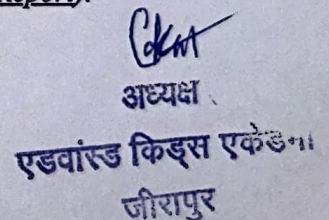 अध्यक्ष
एडवांस्ड किड्स एकेडमी
जीरापुर